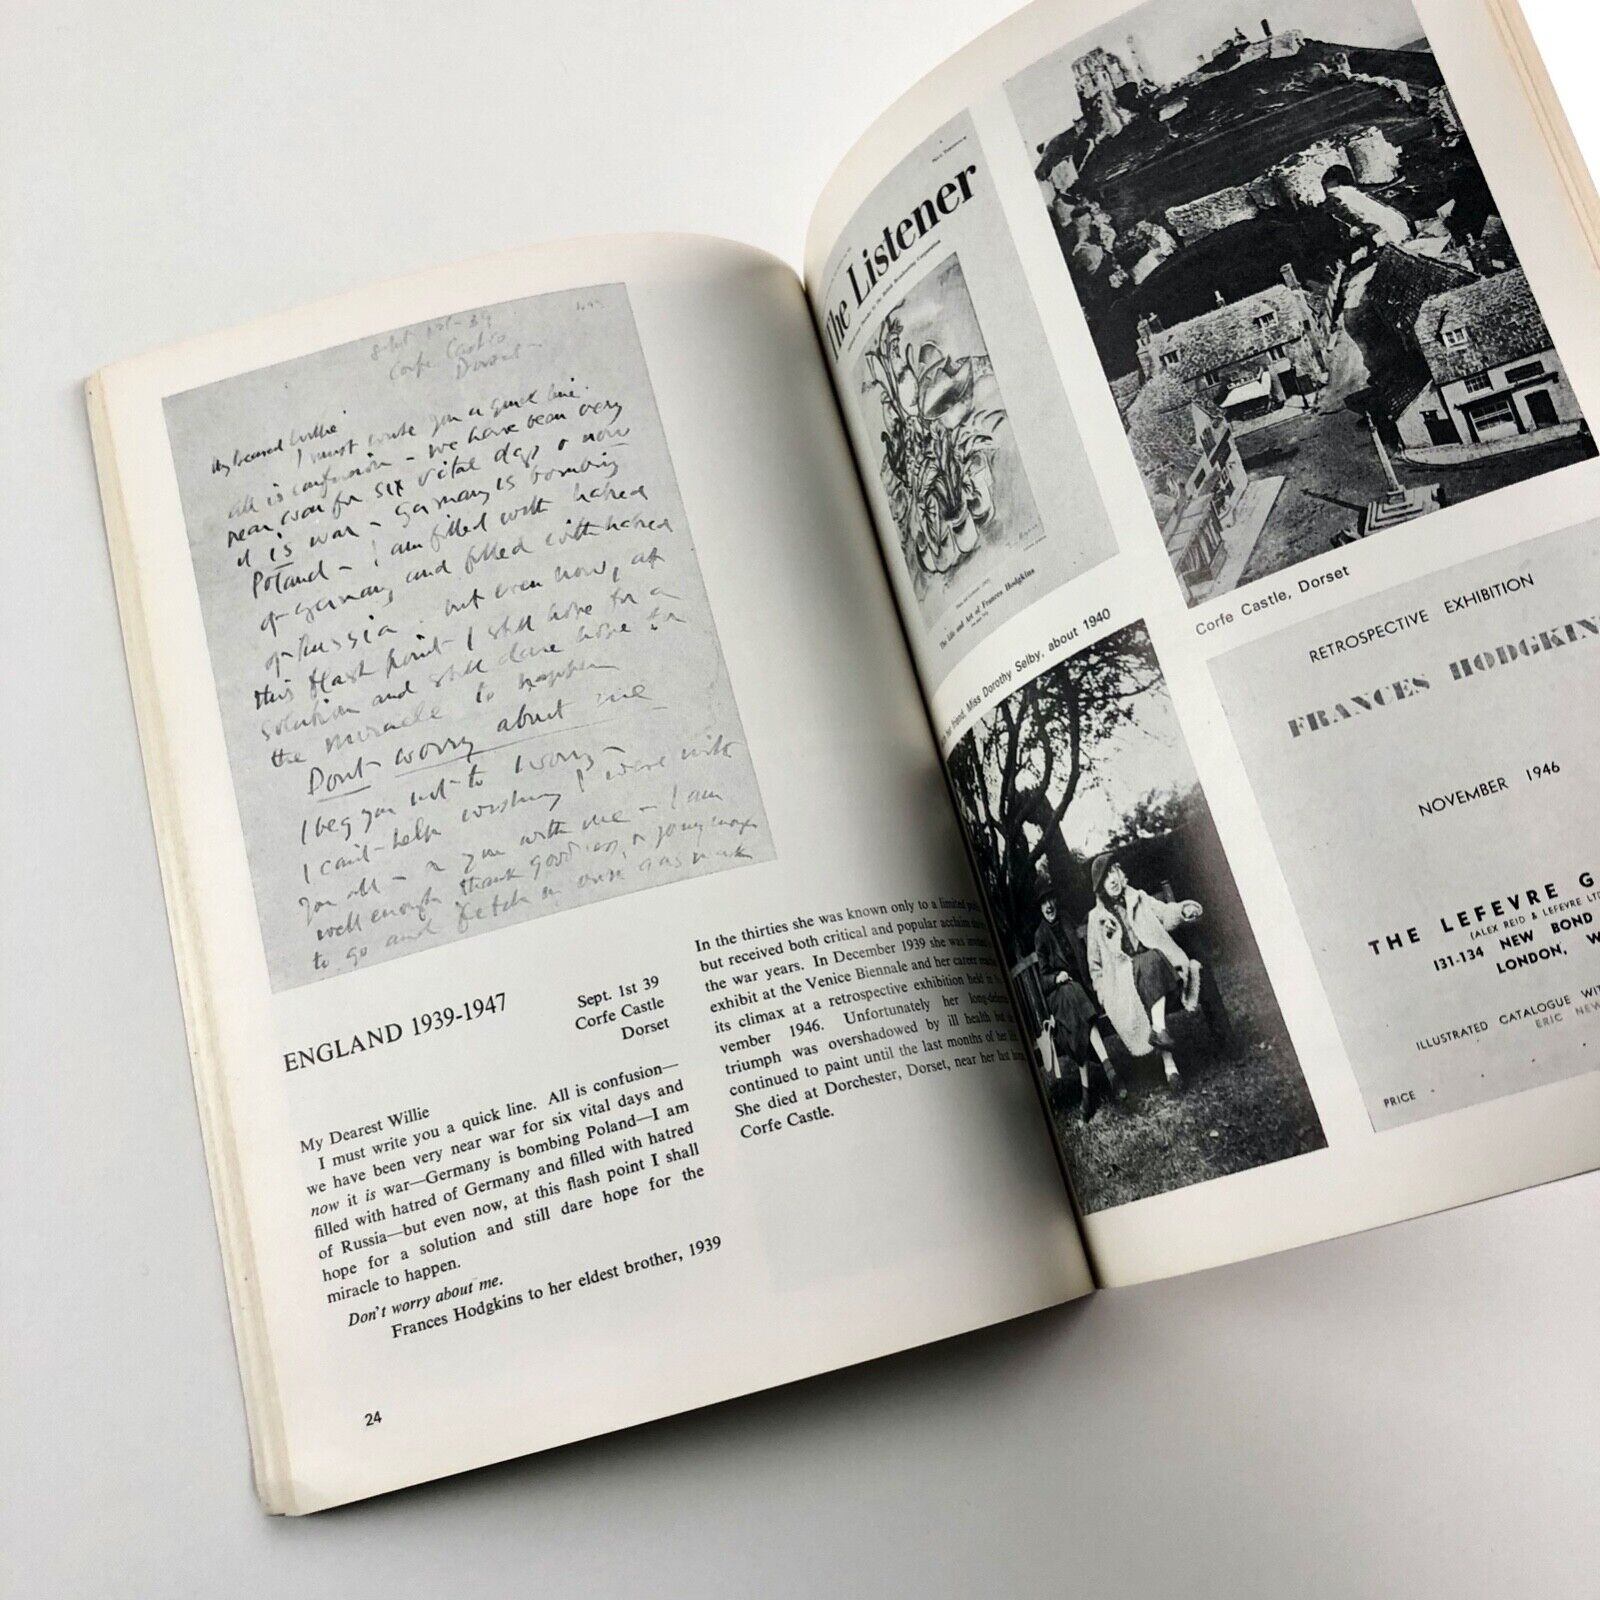 Sept 1st - 39
Corfe Castle
Dorset -
My Dearest Willie
I must write you a quick line
all is confusion - we have been very
near war for six vital days & now
it is war - Germany is bombing
Poland - I am filled with hatred
of Germany and filled with hatred
of Russia - but even now, at
this flash point I still hope for a
solution and still dare hope for
the miracle to happen
Dont worry about me
I beg you not to worry -
I can't help wishing I were with
you all - or you with me - I am
well enough, thank goodness,
to go and fetch gas mask
ENGLAND 1939-1947
Sept. 1st 39
Corfe Castle
Dorset
My Dearest Willie
I must write you a quick line. All is confusion—
we have been very near war for six vital days and
now it is war—Germany is bombing Poland—I am
filled with hatred of Germany and filled with hatred
of Russia—but even now, at this flash point I shall
hope for a solution and still dare hope for the
miracle to happen.
Don't worry about me.
Frances Hodgkins to her eldest brother, 1939
In the thirties she was known only to a limited
but received both critical and popular acclaim
the war years. In December 1939 she was
exhibit at the Venice Biennale and her career
its climax at a retrospective exhibition held in
vember 1946. Unfortunately her long-
triumph was overshadowed by ill health but
continued to paint until the last months of her
She died at Dorchester, Dorset, near her
Corfe Castle.
24
The Listener
The Life and Art of Frances Hodgkins
friend, Miss Dorothy Selby, about 1940
Corfe Castle, Dorset
RETROSPECTIVE EXHIBITION
FRANCES HODGKIN
NOVEMBER 1946
THE LEFEVRE G
(ALEX REID & LEFEVRE LTD
131-134 NEW BOND
LONDON, W
ILLUSTRATED CATALOGUE WIT
ERIC NEW
PRICE